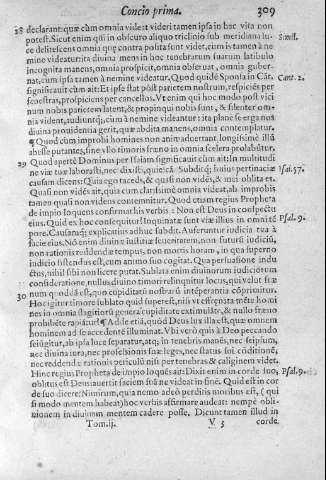 Concio prima. 309
28 declarant: quæ cùm omnia videat videri tamen ipsa in hac vita non
potest. Sicut enim qui in obscuro aliquo triclinio sub meridiana lu-
ce delitescens omnia quæ contra posita sunt videt, cum is tamen à ne
mine videatur: ita divina mens in hoc tenebrarum suarum latibulo
incognita manens, omnia prospicit, omnia observat, omnia guber-
nat, cum ipsa tamen à nemine videatur. Quod quidē Sponsa in Cāt.
significavit cùm ait: Et ipse stat post parietem nostrum, respiciēs per
fenestras, prospiciens per cancellos. Vt enim qui hoc modo post vici
num nobis parietem latent, & propinqui nobis sunt, & silenter om-
nia vident, audiuntq;, cum à nemine videantur: ita plane se erga nos
divina providentia gerit, quæ abdita manens, omnia contemplatur.
¶ Quod dum improbi homines non animadvertant longissimè illā
abesse putantes, sine vllo timoris fræno in omnia scelera prolabūtur.
29 Quod apertè Dominus per Isaiam significavit cùm ait: In multitudi
ne viæ tuæ laborasti, nec dixisti, quiescā Subditq; huius pertinaciæ
causam dicens: Quia ego tacēs, & quasi non vidēs, & mei oblita es.
Quasi non vidēs ait, quia cum clarissimè omnia videat, ab improbis
tamen quasi non videns contemnitur. Quod etiam regius Propheta
de impio loquens confirmat his verbis: Non est Deus in conspectu
eius. Quid ex hoc consequitur? Inquinatæ sunt viæ illius in omni tē
pore. Causamq; explicatius adhuc subdit. Auferuntur iudicia tua à
facie eius. Nō enim divinæ iustitiæ severitatem, non futurū iudiciū,
non rationis reddendæ tempus, non mortis horam, in qua superno
iudicio sistendus est, cum animo suo cogitat. Qua persuasione indu
ctus, nihil sibi non licere putat. Sublata enim divinorum iudiciorum
consideratione, nullus divino timori relinquitur locus, qui velut fræ
30 num quoddā est, quo cupiditatū nostrarū intēperantia cōprimitur.
Hoc igitur timore sublato quid superest, nisi vt effrænata mēte homi
nes in omnia flagitiorū genera cupiditate extimulāte, & nullo fræno
prohibēte rapiātur? ¶ Adde etiā, quòd Deus lux illa est, quæ omnem
hominem ad se accedentē illuminat. Vbi verò quis à Deo peccando
seiūgitur, ab ipsa luce separatur, atq; in tenebris manēs, nec seipsum,
nec divina iura, nec professionis suæ leges, nec status sui cōditionē,
nec reddendæ rationis periculū nisi per tenebras & caliginem videt.
Hinc regius Propheta de impio loquēs ait: Dixit enim in corde suo,
oblitus est Deus avertit faciem suā ne videat in finē. Quid est in cor
de suo dicere? Nimirum, quia nemo adeò perditis moribus est, (qui
si modo mentem habeat) hoc verbis affirmare audeat: nempè obli-
vionem in divinam mentem cadere posse. Dicunt tamen illud in
Tom. ij. V 3 corde.
Simil.
Cant. 2.
Isai. 57.
Psal. 9.
Psal. 9.